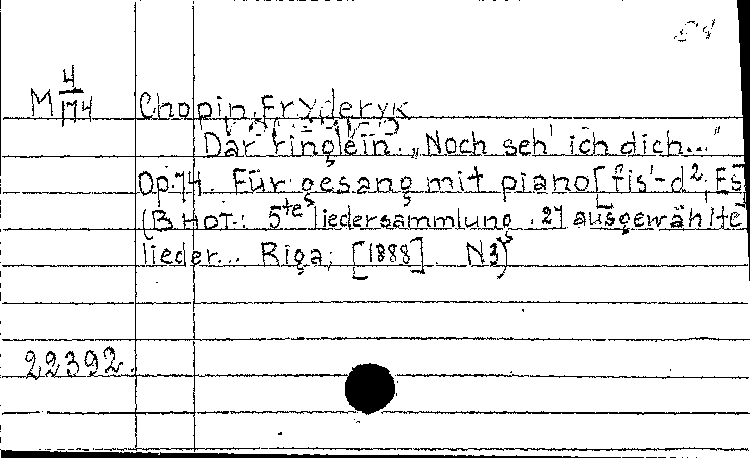 М 4/174
Chopin, Fryderyk
Dar ringlein. „Noch seh' ich dich..."
Op.74. Für gesang mit piano [fis'-d², Es]
(В нот.: 5te liedersammlung. 21 ausgewählte
lieder... Riga, [1888]. N3)
22392.